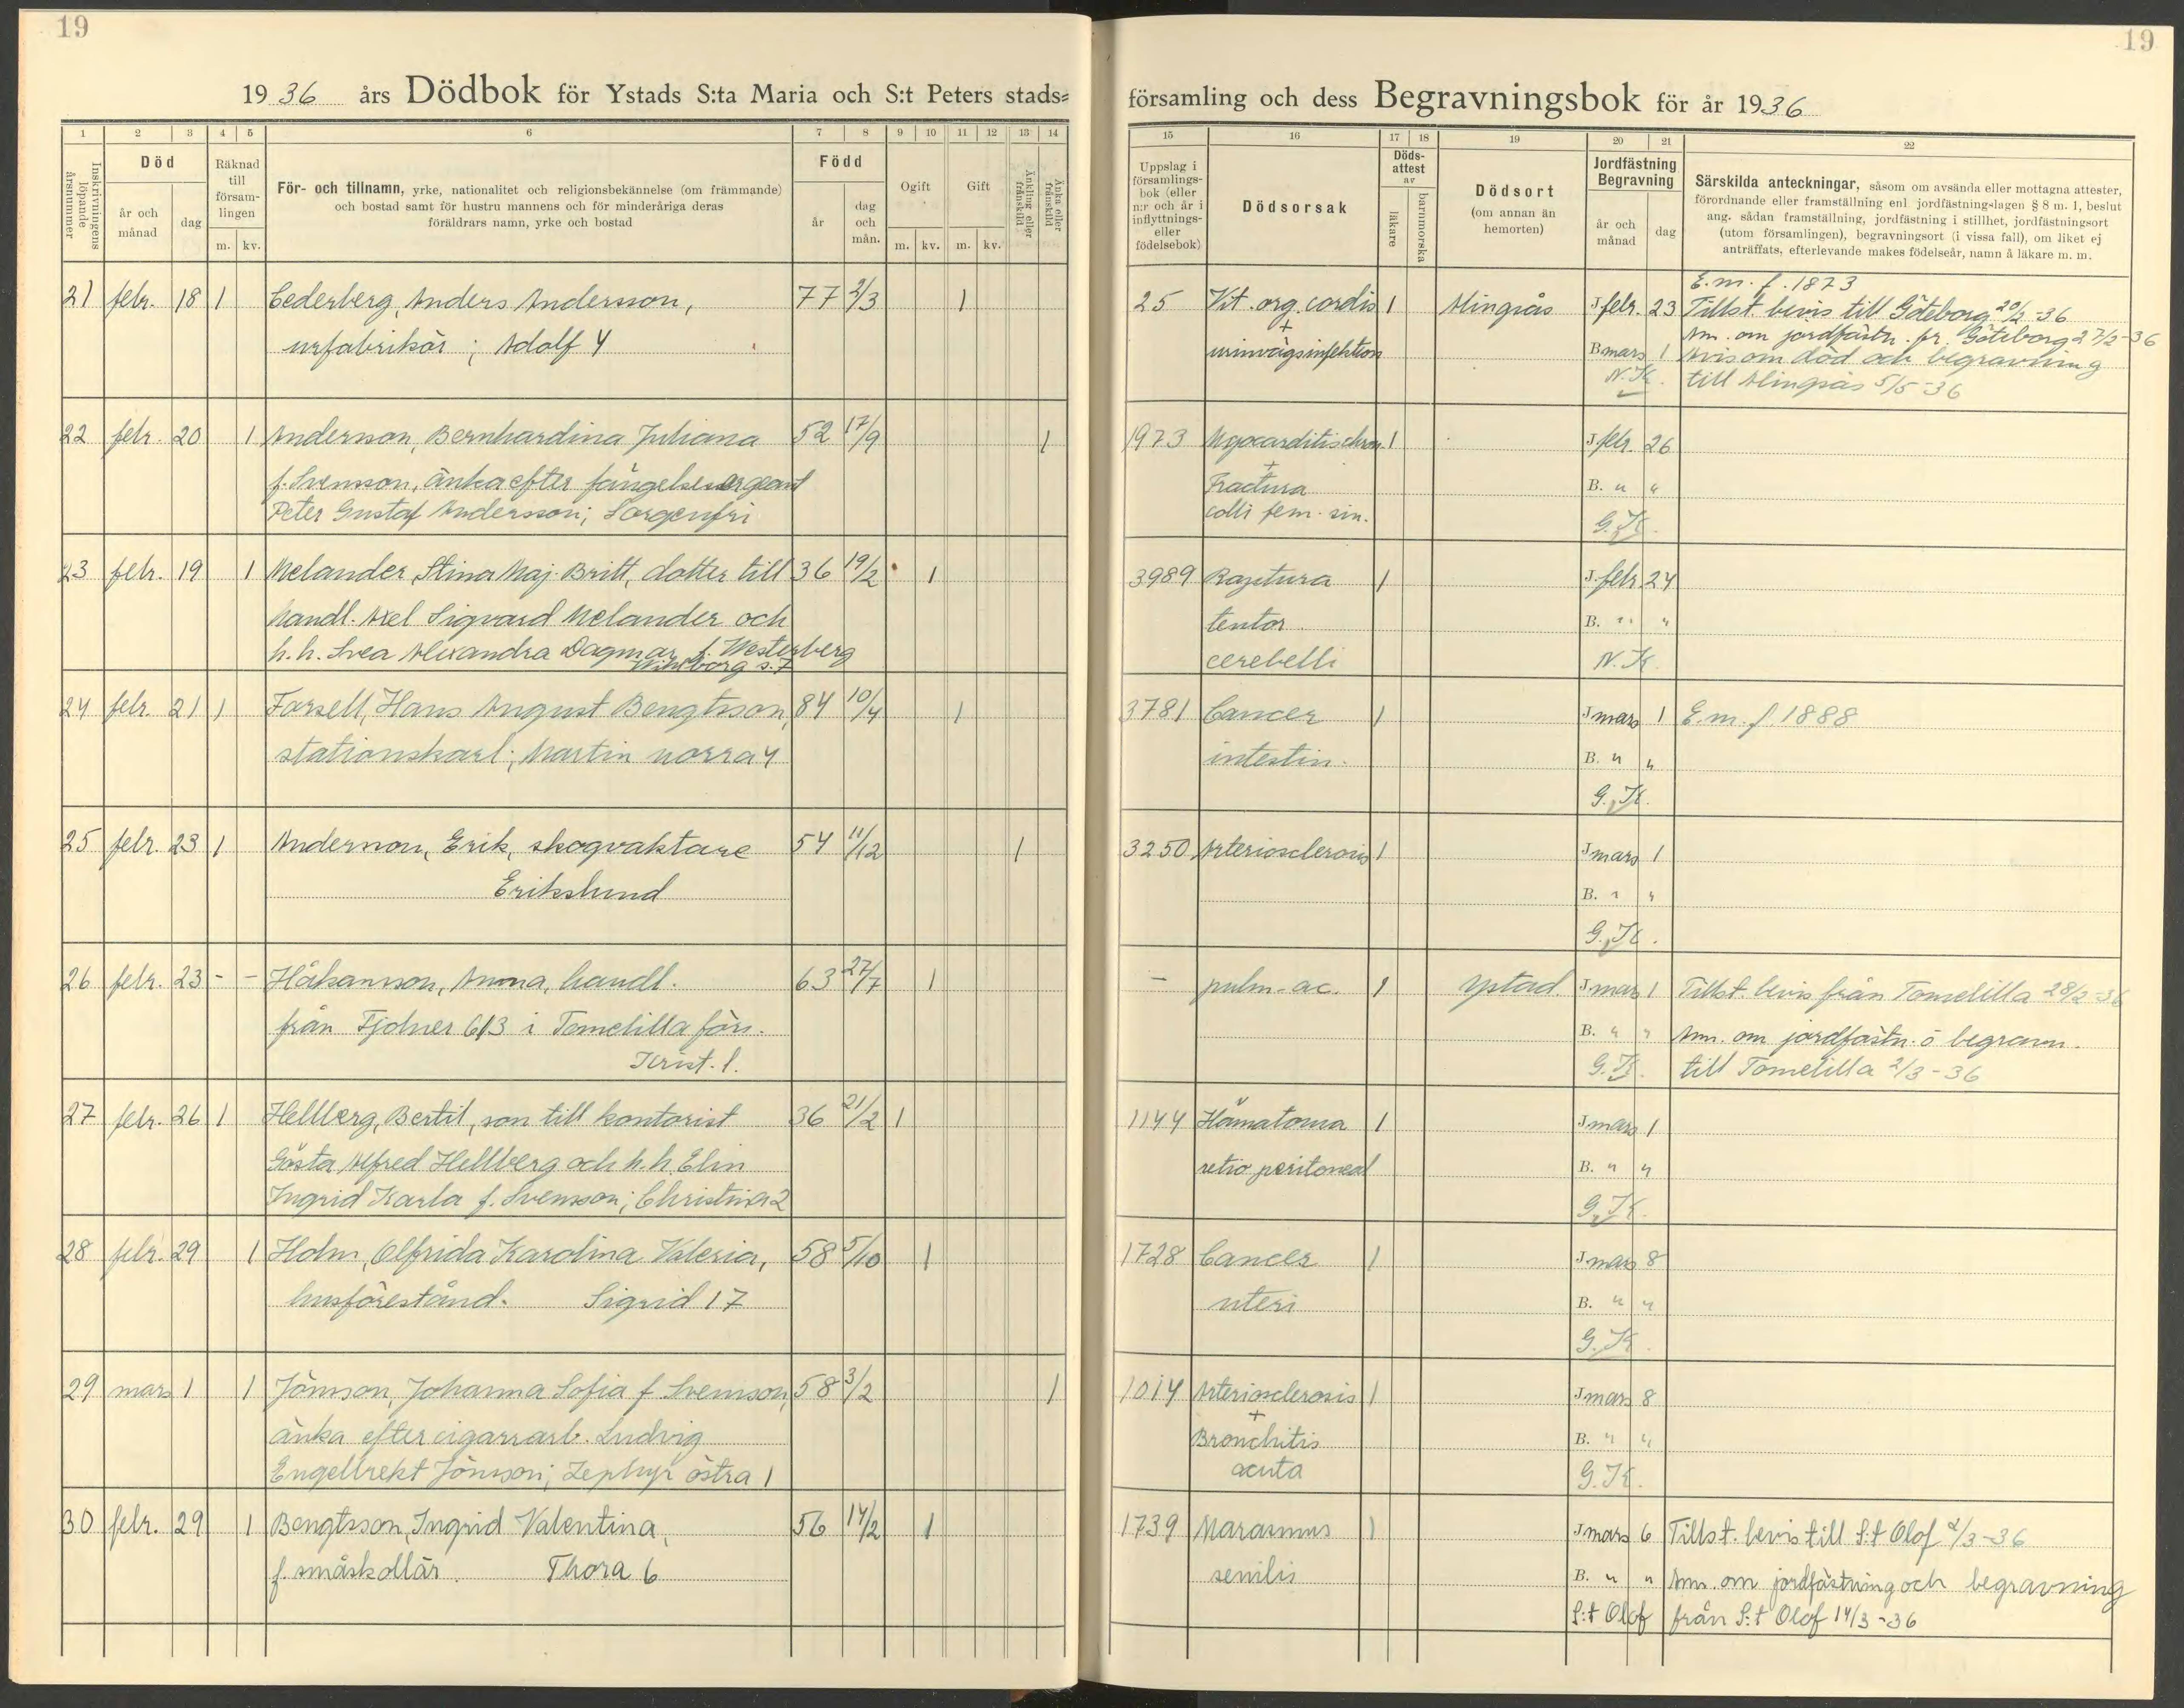 19
1936 års Dödbok för Ystads S:ta Maria och S:t Peters stads-
1 2 3 4 5 6 7 8 9 10 11 12 13 14
Inskrivningens löpande årsnummer
Död
år och månad
dag
Räknad till församlingen
m. kv.
För- och tillnamn, yrke, nationalitet och religionsbekännelse (om främmande)
och bostad samt för hustru mannens och för minderåriga deras
föräldrars namn, yrke och bostad
Född
år
dag och mån.
Ogift
m. kv.
Gift
m. kv.
Änkling eller frånskild
Änka eller frånskild
21 febr. 18 1 Cederberg, Anders Andersson, 77 2/3 1
urfabrikör; Adolf 4
22 febr. 20 1 Andersson, Bernhardina Juliana 52 17/9 1
f. Svensson, änka efter fängelsesergeant
Peter Gustaf Andersson; Sorgenfri
23 febr. 19 1 Melander, Stina Maj-Britt, dotter till 36 19/2 1
handl. Axel Sigvard Melander och
h.h. Svea Alexandra Dagmar f. Westerberg
s. 7
24 febr. 21 1 Farsell, Hans August Bengtsson, 84 10/4 1
stationskarl; Martin norra 4
25 febr. 23 1 Andersson, Erik, skogvaktare 54 11/12 1
Erikslund
26 febr. 23 - - Håkansson, Anna, handl. 63 27/7 1
från Fjolner 613 i Tomelilla förs.
Krist. l.
27 febr. 26 1 Hellberg, Bertil, son till kontorist 36 21/2 1
Gösta Alfred Hellberg och h.h. Elin
Ingrid Karla f. Svensson; Christina 2
28 febr. 29 1 Holm, Olfrida Karolina Valeria, 58 5/10 1
husförestånd. Sigrid 17
29 mars 1 1 Jönsson, Johanna Sofia f. Svensson, 58 3/2 1
änka efter cigarrarb. Ludvig
Engelbrekt Jönsson; Zephyr östra 1
30 febr. 29 1 Bengtsson, Ingrid Valentina, 56 14/2 1
f. småskollär. Thora 6
19
församling och dess Begravningsbok för år 1936
15 16 17 18 19 20 21 22
Uppslag i församlings-bok (eller n:r och år i inflyttnings- eller födelsebok)
Dödsorsak
Döds-attest av
läkare
barnmorska
Dödsort
(om annan än hemorten)
Jordfästning
Begravning
år och månad
dag
Särskilda anteckningar, såsom om avsända eller mottagna attester,
förordnande eller framställning enl jordfästningslagen § 8 m. 1, beslut
ang. sådan framställning, jordfästning i stillhet, jordfästningsort
(utom församlingen), begravningsort (i vissa fall), om liket ej
anträffats, efterlevande makes födelseår, namn å läkare m. m.
E.m. f. 1873
25 Vit. org. cordis 1 Alingsås J febr. 23 Tillst. bevis till Göteborg 20/2 -36
+ Ann. om jordfästn. fr. Göteborg 27/2-36
urinvägsinfektion B mars 1 Avis om död och begravning
N.K. till Alingsås 5/5 -36
1973 Myocarditis chron. 1 J febr. 26
+
Fractura B. " "
colli fem. sin. G.K.
3989 Ruptura 1 J. febr. 24
tentor. B. " "
cerebelli N.K.
3781 Cancer 1 J mars 1 E.m. f. 1888
intestin. B. " "
G.K.
3250 Arteriosclerosis 1 J mars 1
B. " "
G.K.
- pulm-ac. 1 Ystad. J mars 1 Tillst. bevis från Tomelilla 28/2 -36
B. " " Ann. om jordfästn. o begravn.
G.K. till Tomelilla 2/3 -36
1144 Hämatoma 1 J mars 1
retro peritoneal B. " "
G.K.
1728 Cancer 1 J mars 8
uteri B. " "
G.K.
1014 Arteriosclerosis 1 J mars 8
+
Bronchitis B. " "
acuta G.K.
1739 Marasmus 1 J mars 6 Tillst. bevis till S:t Olof 2/3 -36
senilis B. " " Ann. om jordfästning och begravning
S:t Olof från S:t Olof 14/3 -36